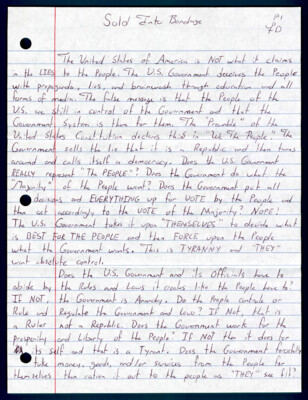 Sold Into Bondage
P1
The United States of America is NOT what it claims
in the LIES to the People. The U.S. Government deceives the People
with propaganda, lies, and brainwash through education and all
forms of media. The false message is that the People of the
U.S. are still in control of the Government and that the
Government System is there for them. The "Preamble" of the
United States Constitution declares this in "We The People." The
Government sells the lie that it is a Republic and then turns
around and calls itself a democracy. Does the U.S. Government
REALLY represent "The PEOPLE"? Does the Government do what the
"Majority" of the People want? Does the Government put all
decisions and EVERYTHING up for VOTE by the People and
then act accordingly to the VOTE of the Majority? NOPE!
The U.S. Government takes it upon "THEMSELVES" to decide what
is BEST FOR THE PEOPLE and then FORCE upon the People
what the Government wants. "This is TYRANNY and "THEY"
want absolute control.
Does the U.S. Government and its Officials have to
abide by the Rules and Laws it creates like the People have to?
If NOT, the Government is Anarchy. Do the People controle or
Rule and Regulate the Government and Laws? If Not, that is
a Ruler not a Republic. Does the Government work for the
prosperity and Liberty of the People? If NOT then it does for
its self and that is a Tyrant. Does the Government forcibly
take money, goods, and/or services from the People for
themselves then ration it out to the people as "THEY" see fit?